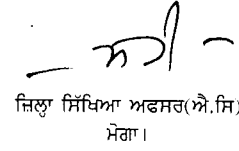 - ਸਹੀ -
ਜ਼ਿਲ੍ਹਾ ਸਿੱਖਿਆ ਅਫਸਰ(ਐ.ਸਿ)
ਮੋਗਾ।